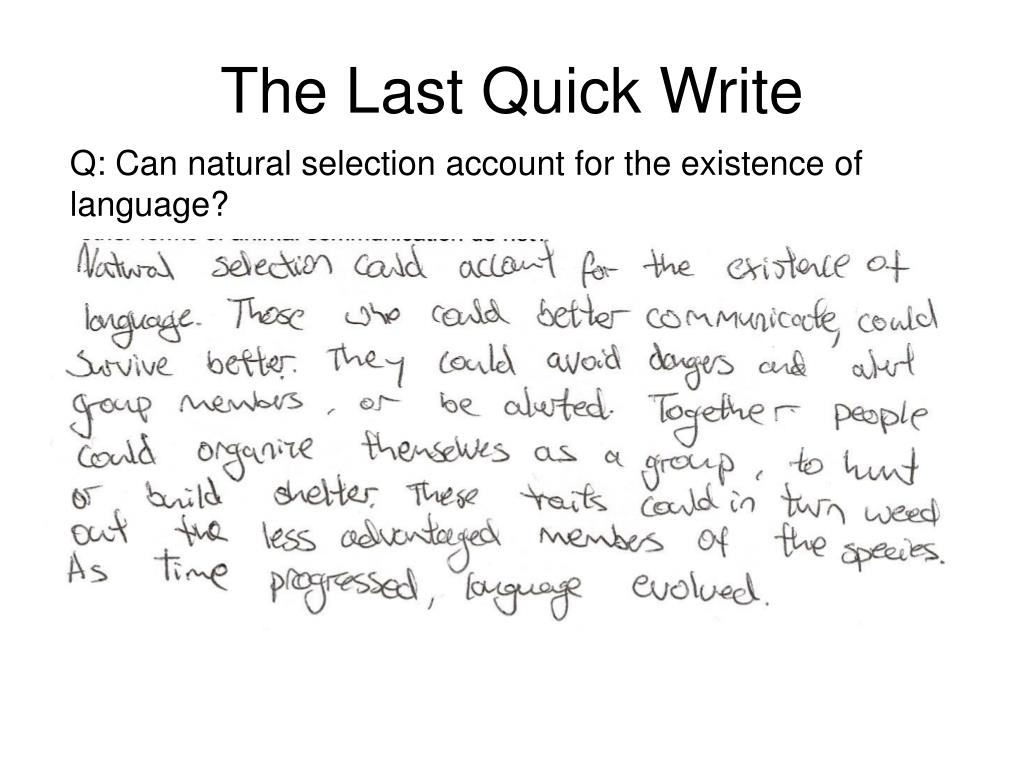 The Last Quick Write
Q: Can natural selection account for the existence of
language?
Natural selection could account for the existence of
language. Those who could better communicate, could
survive better. They could avoid dangers and alert
group members, or be alerted. Together people
could organize themselves as a group, to hunt
or build shelter. These traits could in turn weed
out the less advantaged members of the species.
As time progressed, language evolved.